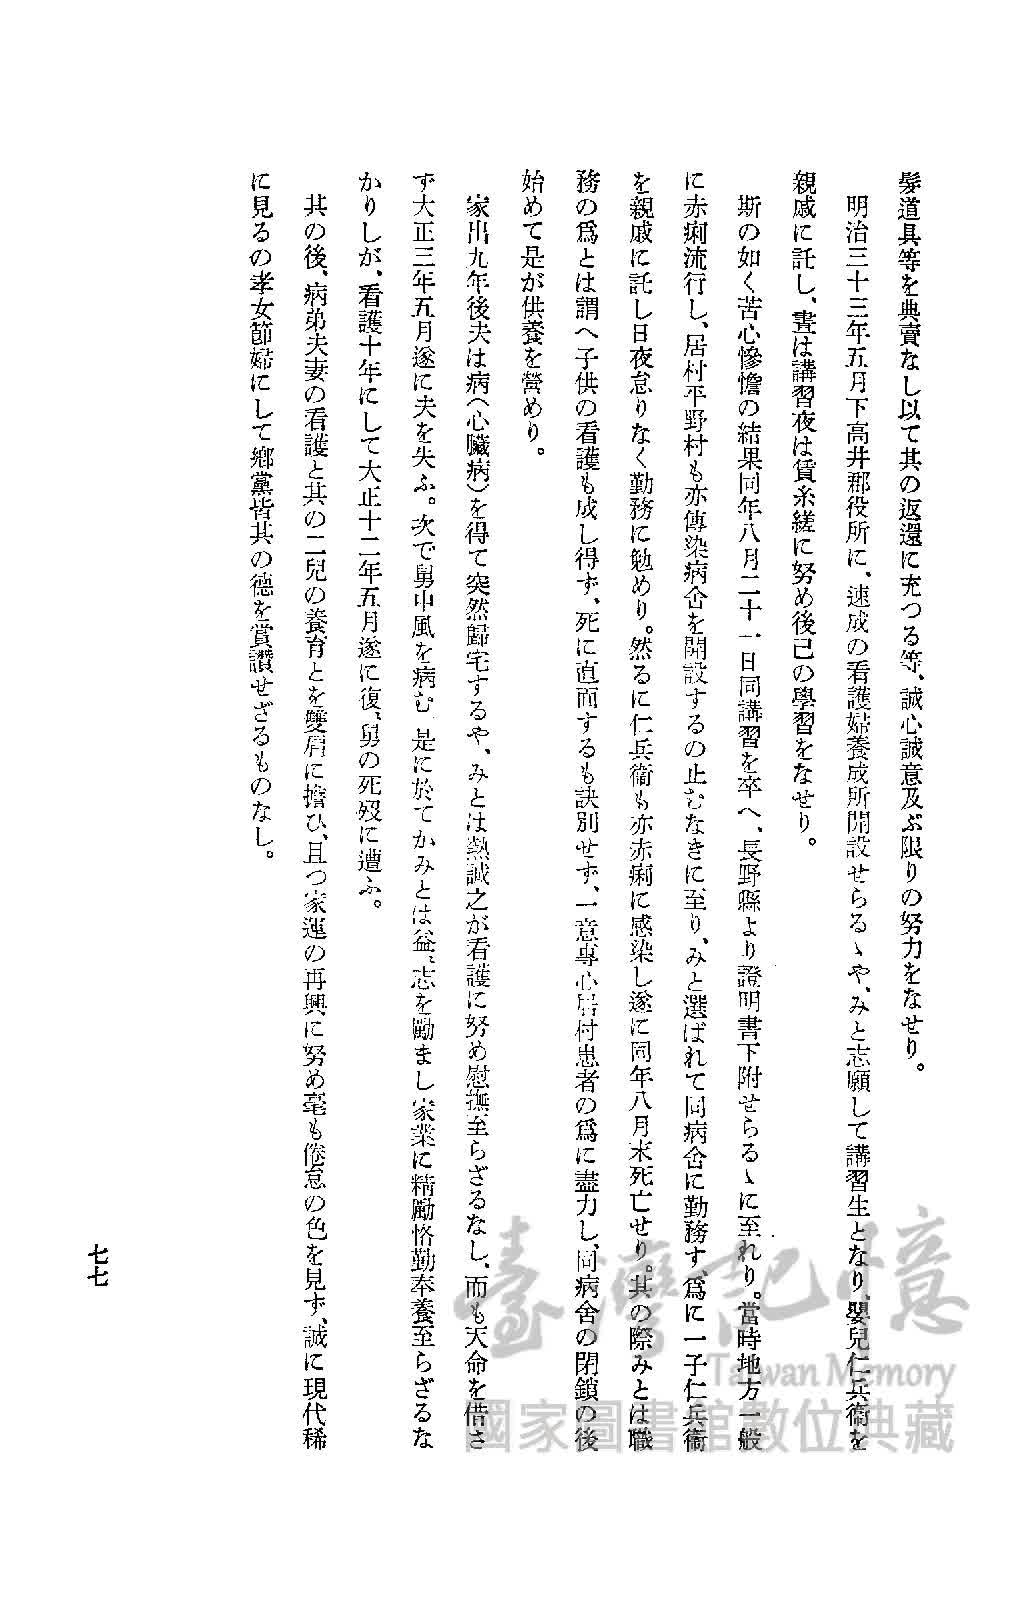 髮道具等を典賣なし以て其の返還に充つる等、誠心誠意及ぶ限りの努力をなせり。
明治三十三年五月下高井郡役所に、速成の看護婦養成所開設せらるゝや、みと志願して講習生となり、嬰兒仁兵衞を
親戚に託し、晝は講習夜は賃糸繰に努め後已の學習をなせり。
斯の如く苦心慘憺の結果同年八月二十一日同講習を卒へ、長野縣より證明書下附せらるゝに至れり。當時地方一般
に赤痢流行し、居村平野村も亦傳染病舍を開設するの止むなきに至り、みと選ばれて同病舍に勤務す、爲に一子仁兵衞
を親戚に託し日夜怠りなく勤務に勉めり。然るに仁兵衞も亦赤痢に感染し遂に同年八月末死亡せり。其の際みとは職
務の爲とは謂へ子供の看護も成し得ず、死に直面するも訣別せず、一意專心居村患者の爲に盡力し、同病舍の閉鎖の後
始めて是が供養を營めり。
家出九年後夫は病（心臟病）を得て突然歸宅するや、みとは熱誠之が看護に努め慰撫至らざるなし、而も天命を借さ
ず大正三年五月遂に夫を失ふ。次で舅中風を病む 是に於てかみとは益〻志を勵まし家業に精勵恪勤奉養至らざるな
かりしが、看護十年にして大正十二年五月遂に復、舅の死歿に遭ふ。
其の後、病弟夫妻の看護と其の二兒の養育とを雙肩に擔ひ、且つ家運の再興に努め毫も倦怠の色を見ず、誠に現代稀
に見るの孝女節婦にして鄕黨皆其の德を賞讚せざるものなし。
七七
臺灣記憶
Taiwan Memory
國家圖書館數位典藏